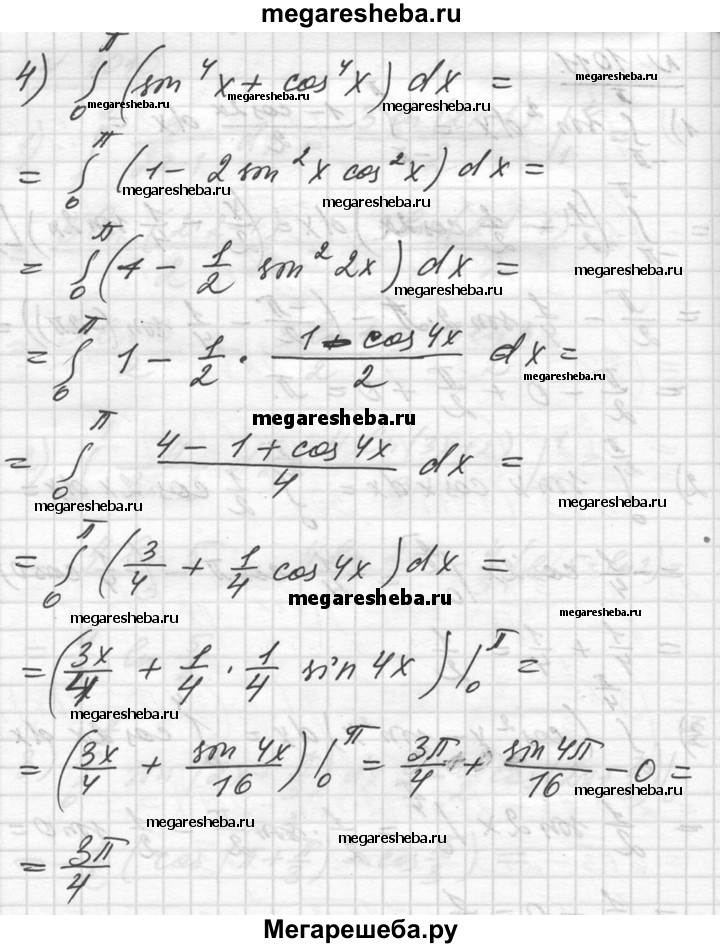 megaresheba.ru
4) ∫₀^π (sin⁴x + cos⁴x) dx =
megaresheba.ru megaresheba.ru megaresheba.ru
= ∫₀^π (1 − 2 sin²x cos²x) dx =
megaresheba.ru megaresheba.ru
= ∫₀^π (1 − 1/2 sin² 2x) dx =
megaresheba.ru megaresheba.ru megaresheba.ru
= ∫₀^π 1 − 1/2 · (1 − cos 4x)/2 dx =
megaresheba.ru
megaresheba.ru
= ∫₀^π (4 − 1 + cos 4x)/4 dx =
megaresheba.ru megaresheba.ru megaresheba.ru
= ∫₀^π (3/4 + 1/4 cos 4x) dx =
megaresheba.ru megaresheba.ru megaresheba.ru
= (3x/4 + 1/4 · 1/4 sin 4x) |₀^π =
megaresheba.ru megaresheba.ru
= (3x/4 + sin 4x/16) |₀^π = 3π/4 + sin 4π/16 − 0 =
megaresheba.ru
megaresheba.ru megaresheba.ru
= 3π/4
megaresheba.ru
Мегарешеба.ру